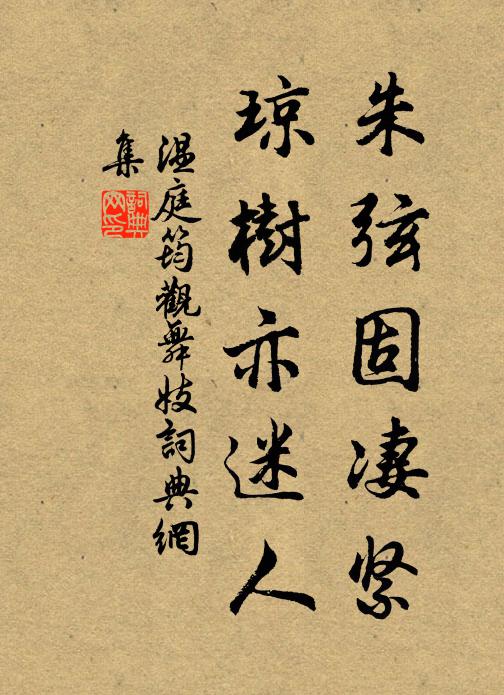 朱弦固凄緊
琼樹亦迷人
温庭筠觀舞妓詞典網
集
詞典
网印